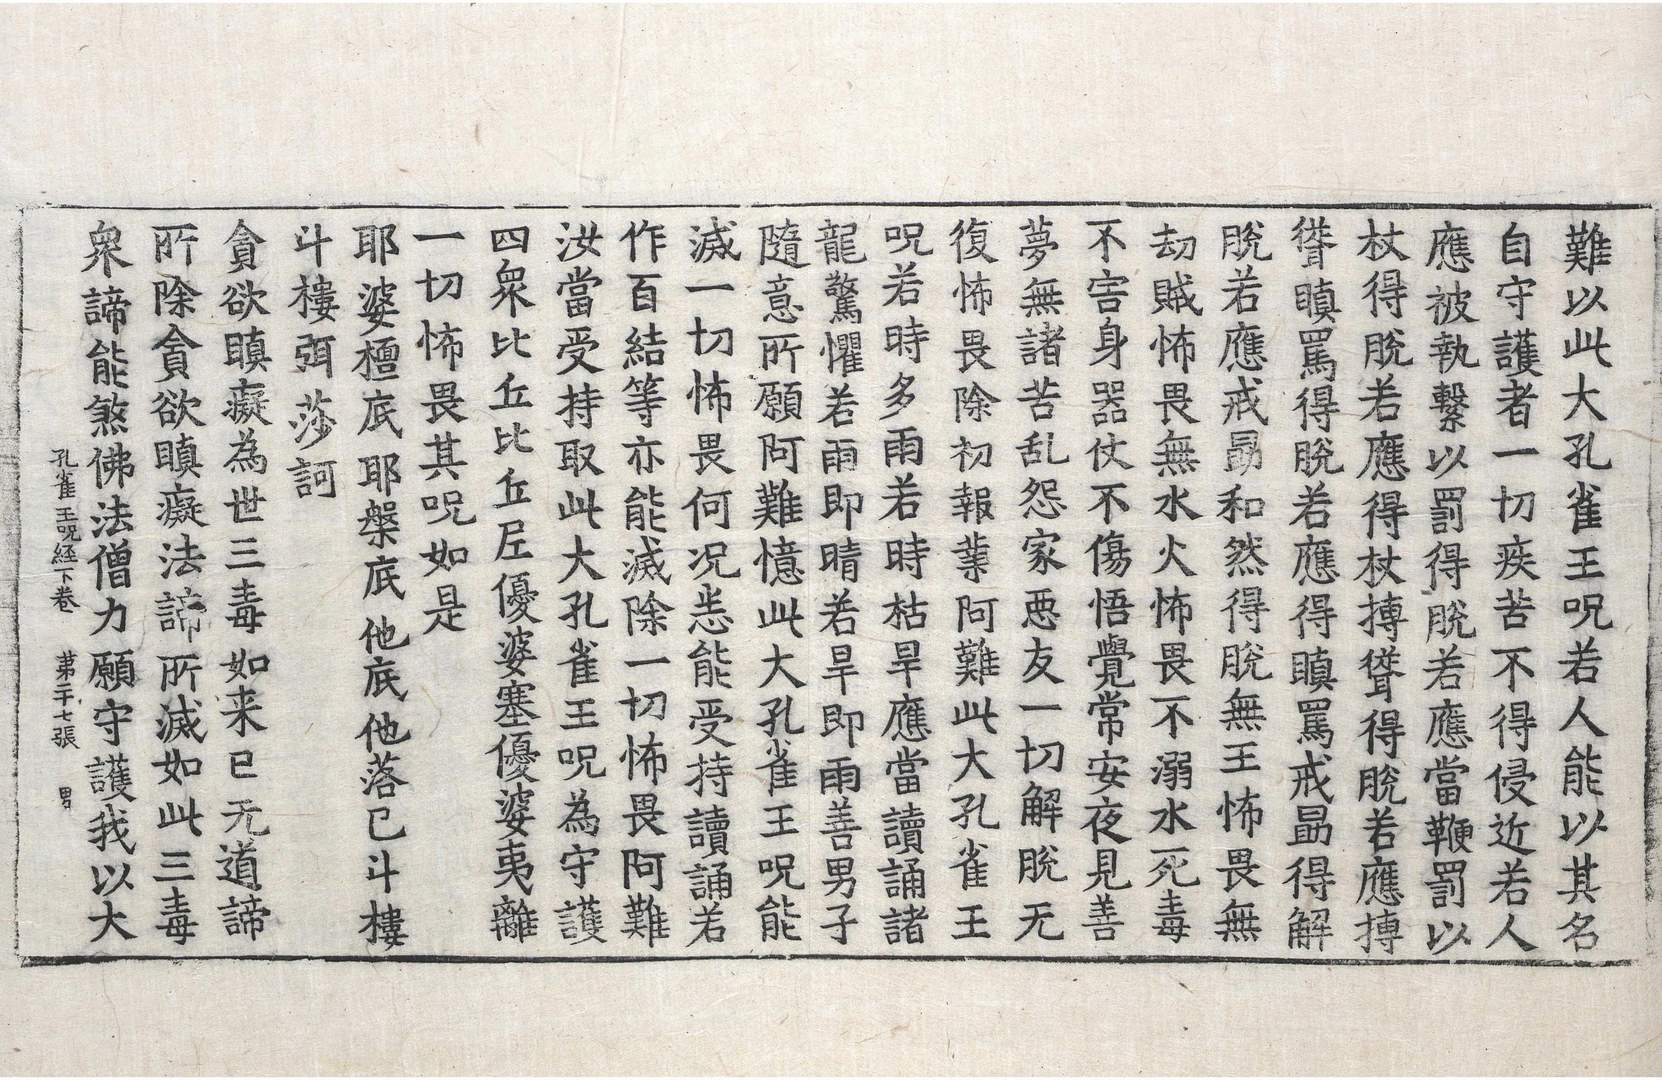 難以此大孔雀王呪若人能以其名
自守護者一切疾苦不得侵近若人
應被執繫以罰得脫若應當鞭罰以
杖得脫若應得杖搏聳得脫若應搏
聳瞋罵得脫若應得瞋罵戒勗得解
脫若應戒勗和然得脫無王怖畏無
劫賊怖畏無水火怖畏不溺水死毒
不害身器仗不傷悟覺常安夜見善
夢無諸苦乱怨家惡友一切解脫无
復怖畏除初報業阿難此大孔雀王
呪若時多雨若時枯旱應當讀誦諸
龍驚懼若雨即晴若旱即雨善男子
隨意所願阿難憶此大孔雀王呪能
滅一切怖畏何况悉能受持讀誦若
作百結等亦能滅除一切怖畏阿難
汝當受持取此大孔雀王呪為守護
四眾比丘比丘尼優婆塞優婆夷離
一切怖畏其呪如是
耶婆檀底 耶槃底 他底他落巳斗樓
斗樓弭 莎訶
貪欲瞋癡為世三毒如来已无道諦
所除貪欲瞋癡法諦所滅如此三毒
眾諦能煞佛法僧力願守護我以大
孔雀王呪経下卷 第二十七張 男